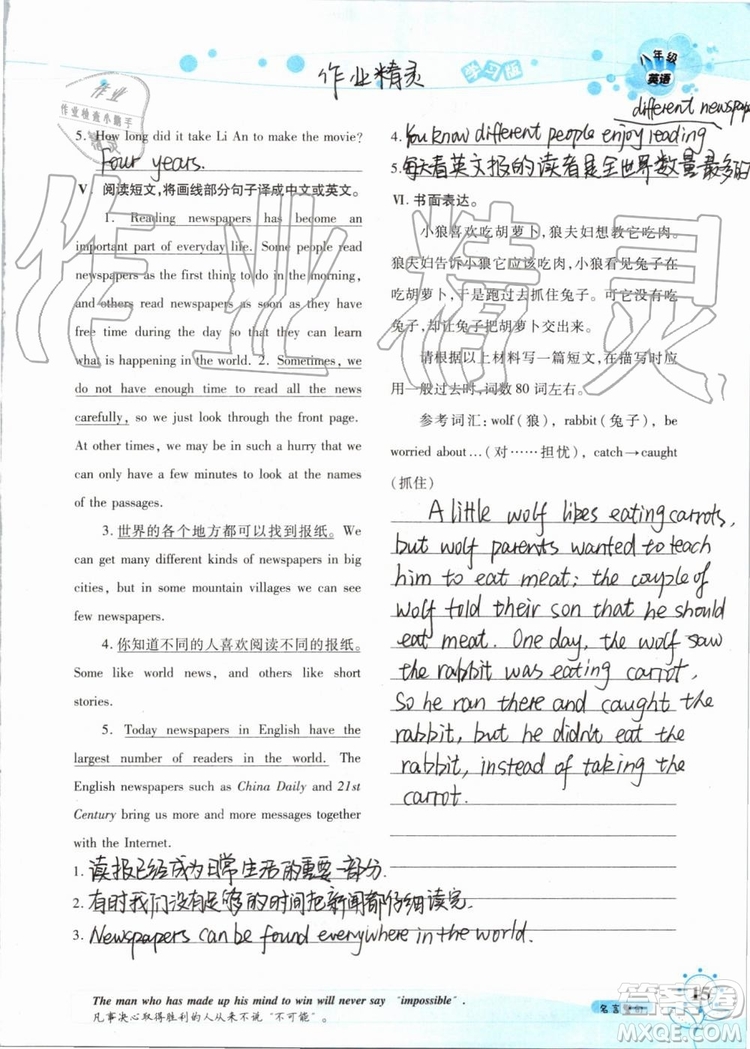 作业精灵
学习版
八年级
英语
作业
作业检查小助手
精灵
5. How long did it take Li An to make the movie?
Four years.
Ⅴ. 阅读短文,将画线部分句子译成中文或英文。
1. Reading newspapers has become an
important part of everyday life. Some people read
newspapers as the first thing to do in the morning,
and others read newspapers as soon as they have
free time during the day so that they can learn
what is happening in the world. 2. Sometimes, we
do not have enough time to read all the news
carefully, so we just look through the front page.
At other times, we may be in such a hurry that we
only have a few minutes to look at the names
of the passages.
3. 世界的各个地方都可以找到报纸。We
can get many different kinds of newspapers in big
cities, but in some mountain villages we can see
few newspapers.
4. 你知道不同的人喜欢阅读不同的报纸。
Some like world news, and others like short
stories.
5. Today newspapers in English have the
largest number of readers in the world. The
English newspapers such as China Daily and 21st
Century bring us more and more messages together
with the Internet.
1. 读报已经成为日常生活的重要一部分.
2. 有时我们没有足够的时间把新闻都仔细读完.
3. Newspapers can be found everywhere in the world.
different newspape
4. You know different people enjoy reading
5. 每天看英文报的读者是全世界数量最多的
Ⅵ. 书面表达。
小狼喜欢吃胡萝卜,狼夫妇想教它吃肉。
狼夫妇告诉小狼它应该吃肉。小狼看见兔子在
吃胡萝卜,于是跑过去抓住兔子。可它没有吃
兔子,却叫兔子把胡萝卜交出来。
请根据以上材料写一篇短文,在描写时应
用一般过去时,词数 80 词左右。
参考词汇:wolf(狼),rabbit(兔子),be
worried about…(对……担忧),catch→caught
(抓住)
A little wolf likes eating carrots,
but wolf parents wanted to teach
him to eat meat; the couple of
wolf told their son that he should
eat meat. One day, the wolf saw
the rabbit was eating carrot.
So he ran there and caught the
rabbit, but he didn't eat the
rabbit, instead of taking the
carrot.
The man who has made up his mind to win will never say "impossible".
凡事决心取得胜利的人从来不说"不可能"。
15
答案圈
MXQE.COM
作业精灵